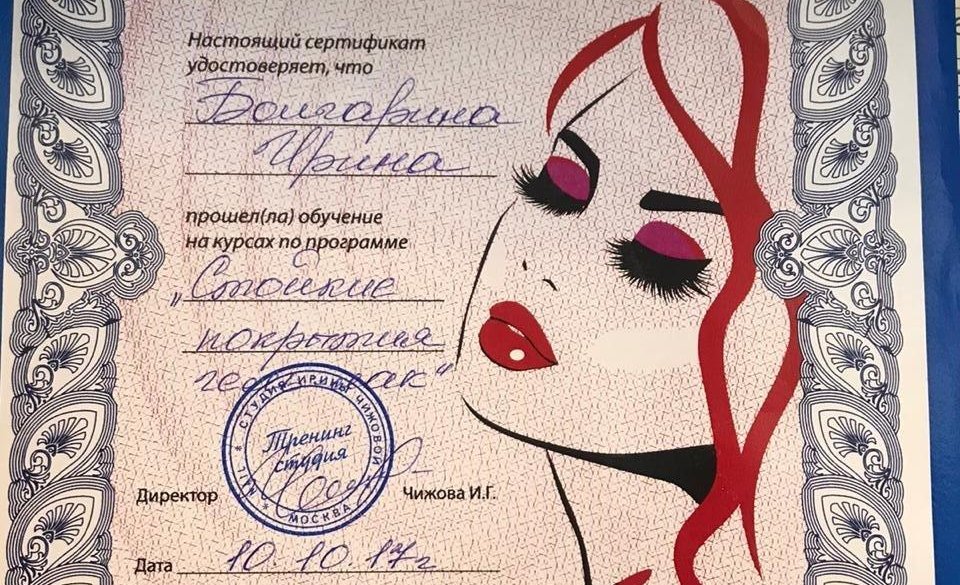 Настоящий сертификат
удостоверяет, что
Болгарина
Ирина
прошел(ла) обучение
на курсах по программе
„Стойкие
покрытия
гель лак“
* СТУДИЯ ИРИНЫ ЧИЖОВОЙ *
Тренинг
студия
МОСКВА
Директор Чижова И.Г.
Дата 10.10.17г